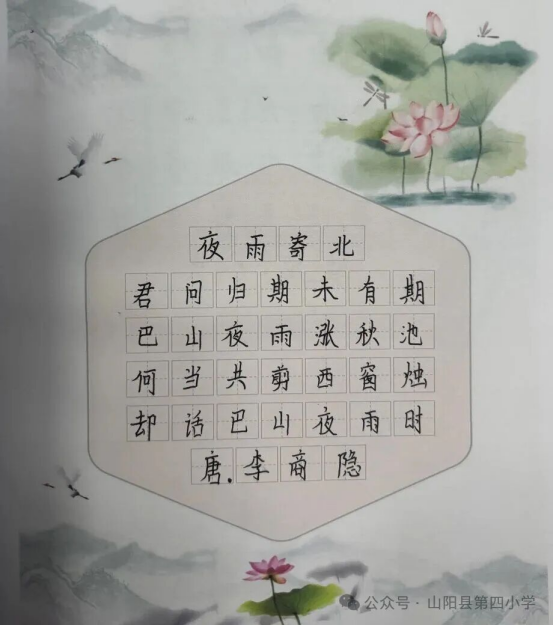 夜雨寄北
君问归期未有期
巴山夜雨涨秋池
何当共剪西窗烛
却话巴山夜雨时
唐.李商隐
公众号·山阳县第四小学